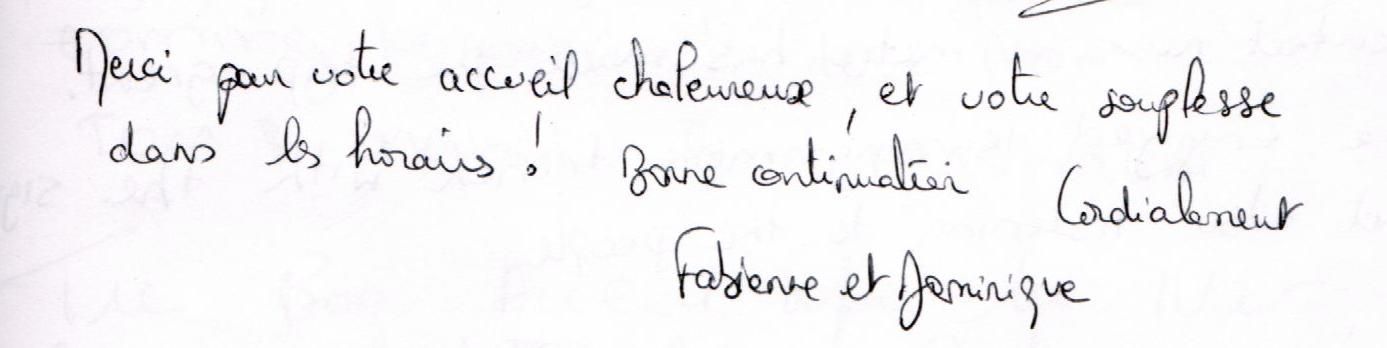 Merci pour votre accueil chaleureux, et votre souplesse
dans les horaires ! Bonne continuation
Cordialement
Fabienne et Dominique